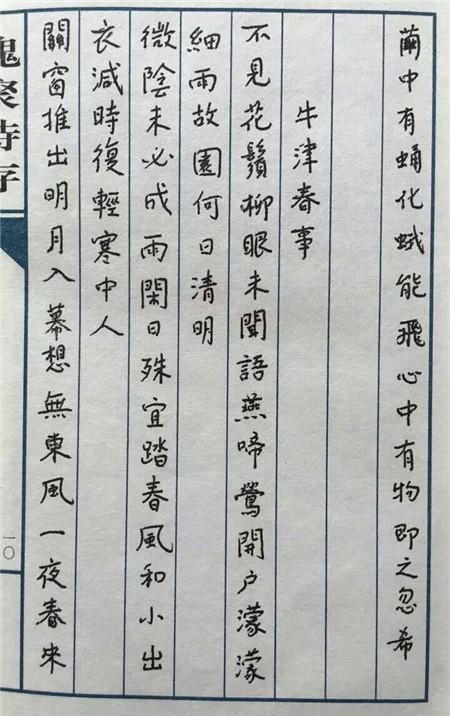 繭中有蛹化蛾能飛心中有物即之忽希
牛津春事
不見花鬚柳眼未聞語燕啼鶯開戶濛濛
細雨故園何日清明
微陰未必成雨閑日殊宜踏春風和小出
衣減時復輕寒中人
關窗推出明月入幕想無東風一夜春來
槐聚詩存
一〇